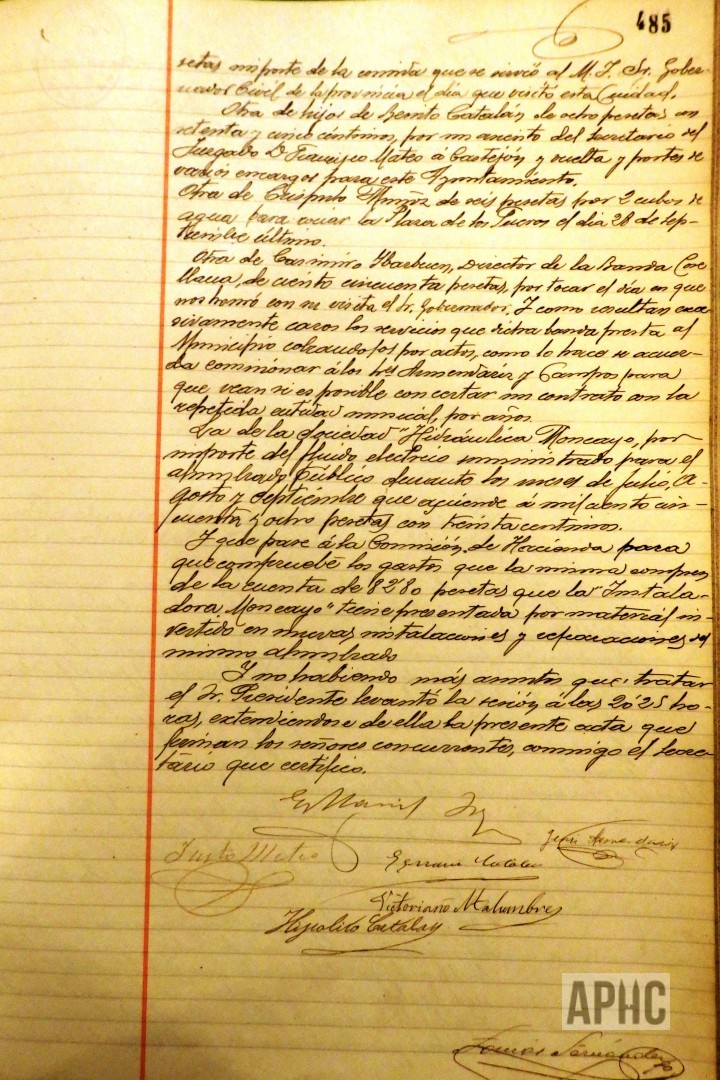 485
setas importe de la comida que se sirvió al M. I. Sr. Gober-
nador Civil de la provincia el dia que visitó esta Ciudad.
Otra de hijos de Benito Catalán de ocho pesetas con
setenta y cinco céntimos, por un asiento del Secretario del
Juzgado D. Francisco Mateo á Castejón y vuelta y portes de
varios encargos para este Ayuntamiento.
Otra de Crispulo Muñoz de seis pesetas por 2 cubos de
agua para rociar la Plaza de los Fueros el dia 28 de sep-
tiembre último.
Otra de Casimiro Ibarbuen, Director de la Banda Core-
llana, de ciento cincuenta pesetas, por tocar el dia en que
nos honró con su visita el Sr. Gobernador. Y como resultan exce-
sivamente caros los servicios que dicha banda presta al
Municipio cobrandolos por actos, como lo hace se acuer-
da comisionar á los Sres Armendariz y Campos para
que vean si es posible concertar un contrato con la
repetida entidad musical, por años.
La de la Sociedad "Hidráulica Moncayo, por
importe del fluido electrico suministrado para el
alumbrado Público durante los meses de julio, A-
gosto y Septiembre que asciende á mil ciento cin-
cuenta y ocho pesetas con treinta centimos.
Y que pase á la Comisión de Hacienda para
que compruebe los gastos que la misma
de la cuenta de 828'80 pesetas que la "Instala-
dora Moncayo" tiene presentada por material in-
vertido en nuevas instalaciones y reparaciones del
mismo alumbrado
Y no habiendo más asuntos que tratar
el Sr. Presidente levantó la sesión á las 20'25 ho-
ras, extendiendose de ella la presente acta que
firman los señores concurrentes, conmigo el Secre-
tario que certifico.
Jesús Armendariz
Justo Mateo
Catalán
Victoriano Malumbres
Hipolito Catalán
Tomás Fernández
APHC